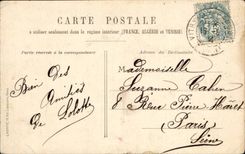 CARTE POSTALE
à utiliser seulement dans le régime intérieur (FRANCE, ALGÉRIE et TUNISIE)
Partie réservée à la correspondance
Adresse du Destinataire
Bien Des
Amitiés
De Lolotte
Mademoiselle
Suzanne Cahen
8 Rue Pierre
Paris
Seine